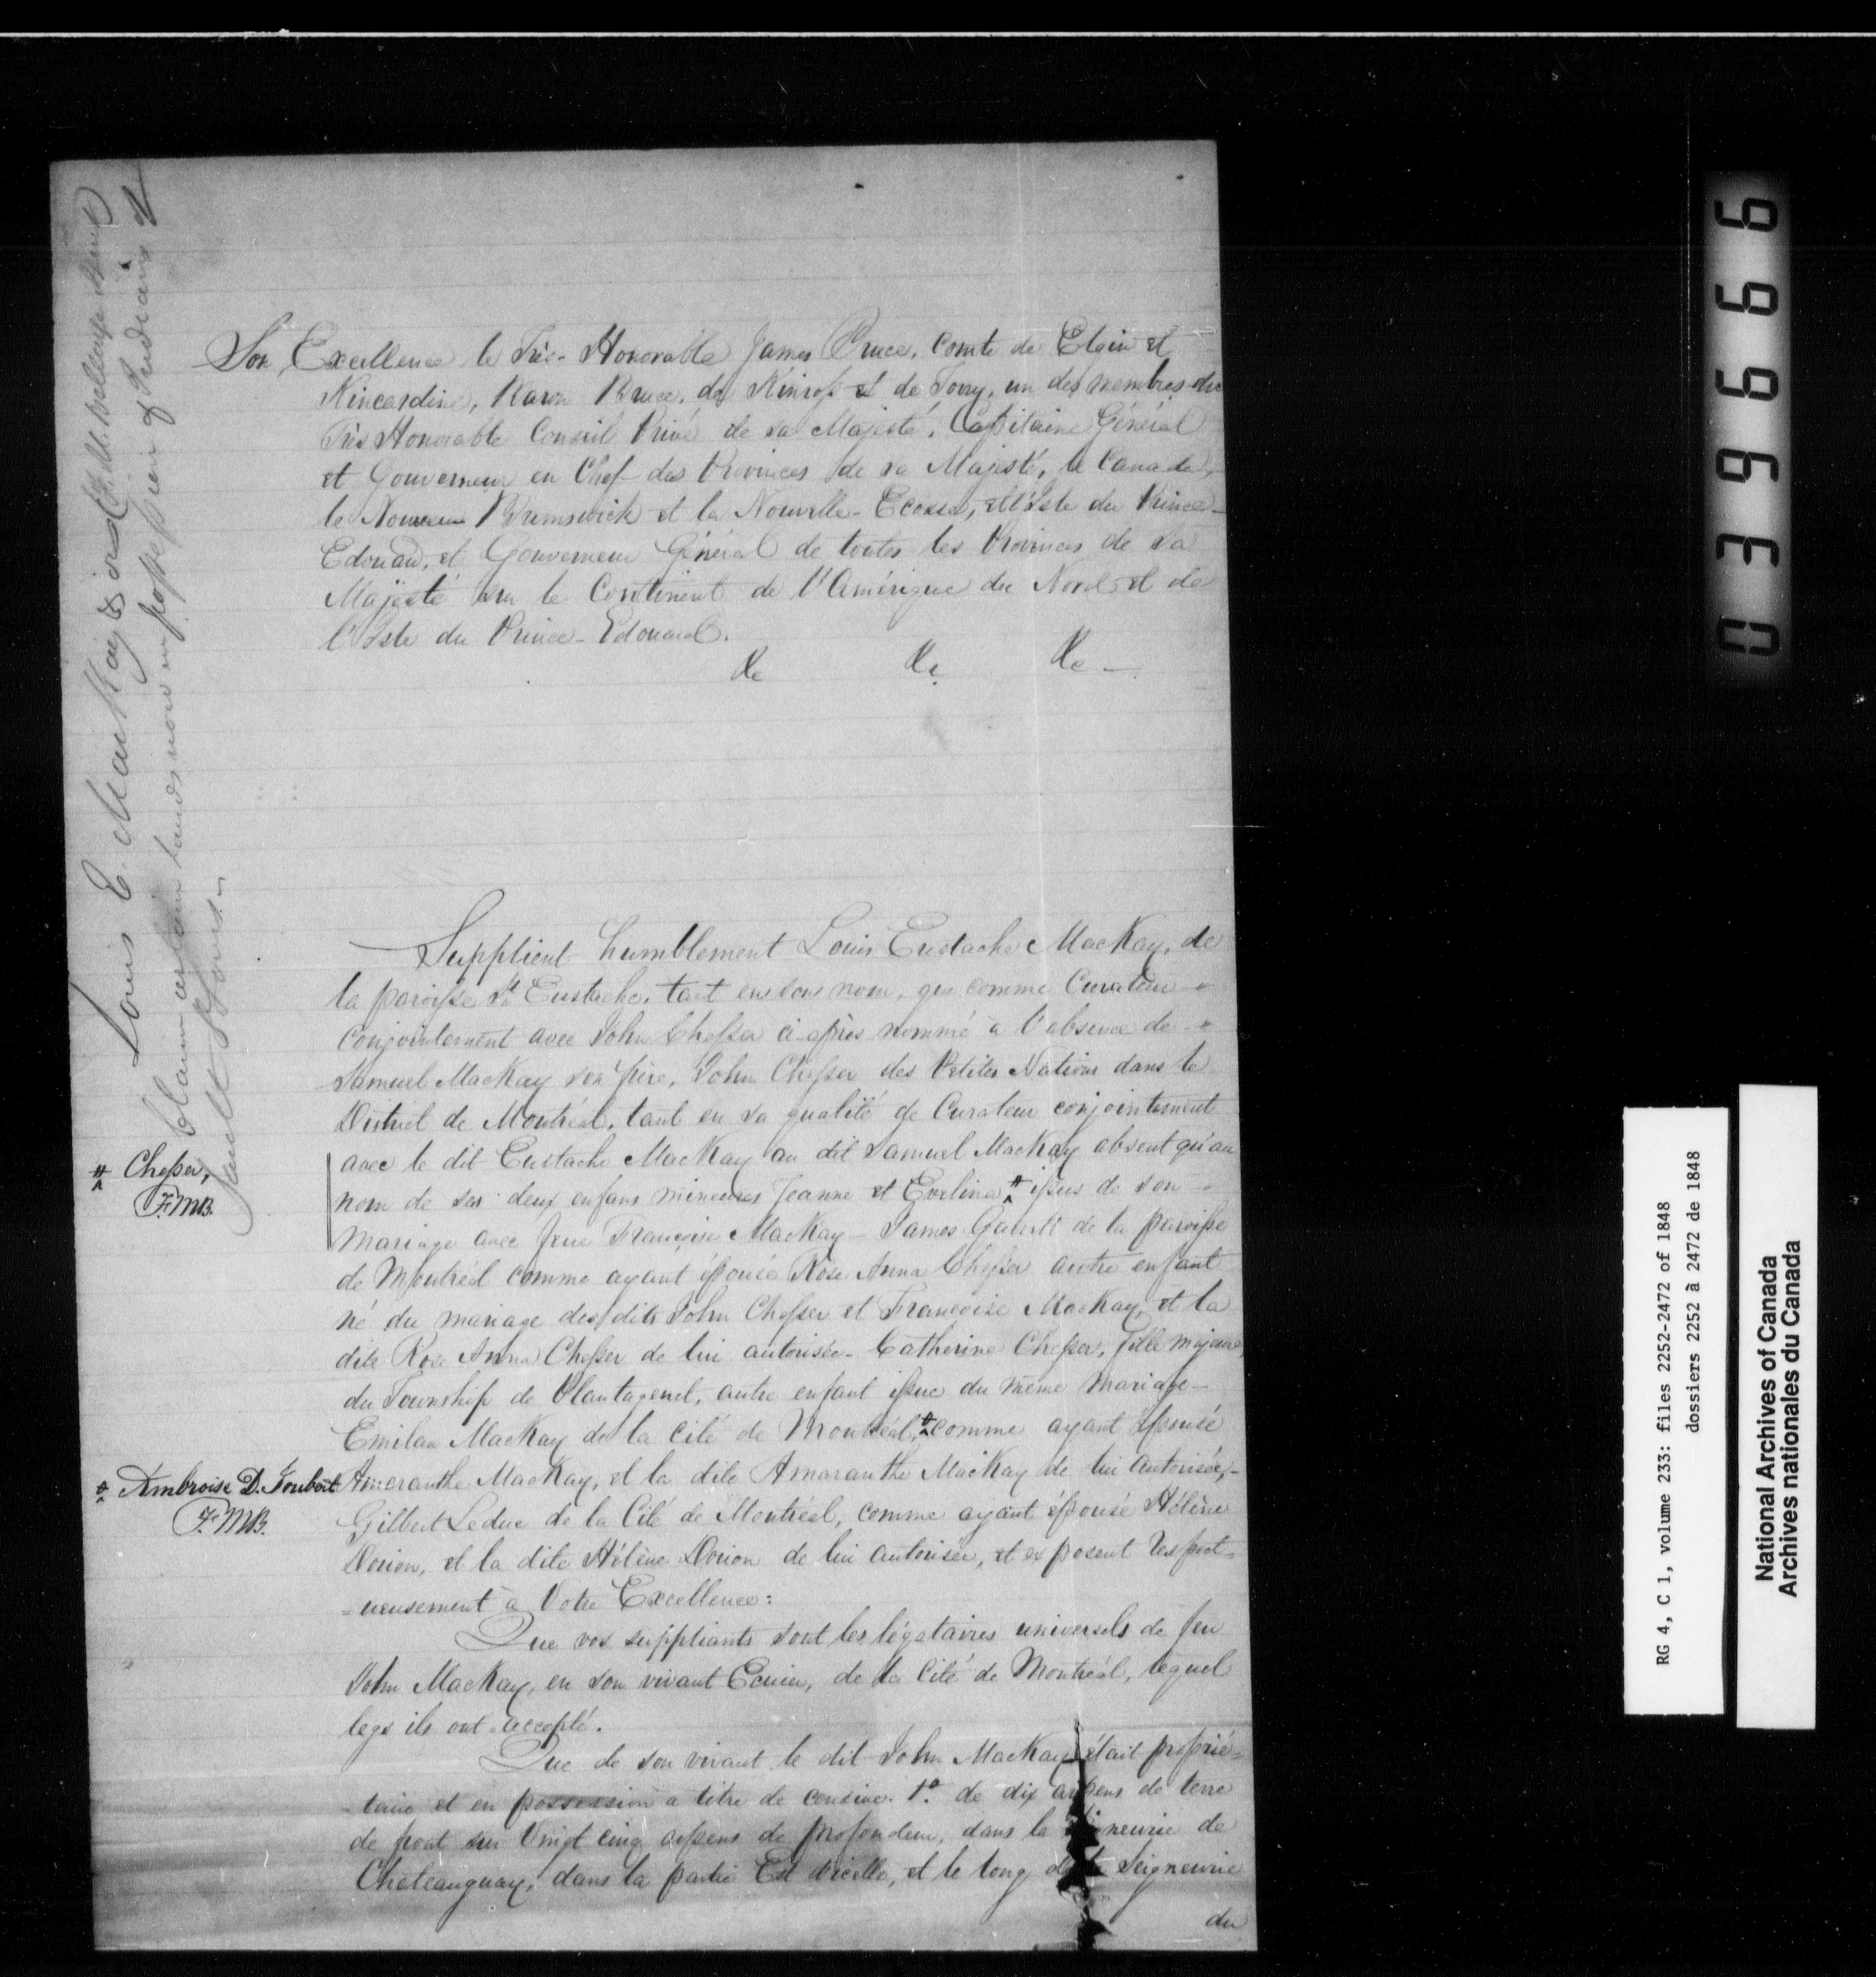 Son Excellence le Très-Honorable James Bruce, Comte de Elgin et
Kincardine, Baron Bruce, de Kinross et de Torry, un des membres du
Très Honorable Conseil Privé de sa Majesté, Capitaine Général
et Gouverneur en Chef des Provinces de sa Majesté, le Canada,
le Nouveau Brunswick et la Nouvelle-Ecosse, et l'Isle du Prince-
Edouard, et Gouverneur Général de toutes les Provinces de sa
Majesté sur le Continent de l'Amérique du Nord et de
l'Isle du Prince-Edouard.
&c &c &c —
Supplient humblement Louis Eustache MacKay, de
la paroisse St. Eustache, tant en son nom, que comme Curateur
conjointement avec John Chesser ci-après nommé à l'absence de
Samuel MacKay son père, John Chesser des Petites Nations dans le
District de Montréal, tant en sa qualité de Curateur conjointement
avec le dit Eustache MacKay au dit Samuel MacKay absent qu'au
nom de ses deux enfans mineures Jeanne et Evelina # issus de son
mariage avec feue Françoise MacKay — James Gault de la paroisse
de Montréal comme ayant épousé Rose Anna Chesser autre enfant
né du mariage des dits John Chesser et Françoise MacKay, et la
dite Rose Anna Chesser de lui autorisée — Catherine Chesser, fille majeure,
du Township de Plantagenet, autre enfant issue du même mariage —
Emilan MacKay de la Cité de Montréal, comme ayant épousé
Ameranthe MacKay, et la dite Amaranthe MacKay de lui autorisée, —
Gilbert Leduc de la Cité de Montréal, comme ayant épousé Hélène
Dorion, et la dite Hélène Dorion de lui autorisée, et exposent respect=
=ueusement à Votre Excellence:
Que vos suppliants sont les légataires universels de feu
John MacKay, en son vivant Ecuier, de la Cité de Montréal, lequel
legs ils ont accepté.
Que de son vivant le dit John MacKay était proprié=
taire et en possession a titre de censive. 1o. de dix arpens de terre
de front sur vingt cinq arpens de profondeur, dans la Seigneurie de
Chateauguay, dans la partie Est d'icelle, et le long de la Seigneurie
du
# Chesser,
F.M.B.
Ambroise D. Joubert
F.M.B.
Louis E MacKay & ors
Claim certain lands now in possession of Indians of
Sault St Louis
039666
RG 4, C 1, volume 233: files 2252-2472 of 1848
dossiers 2252 à 2472 de 1848
National Archives of Canada
Archives nationales du Canada